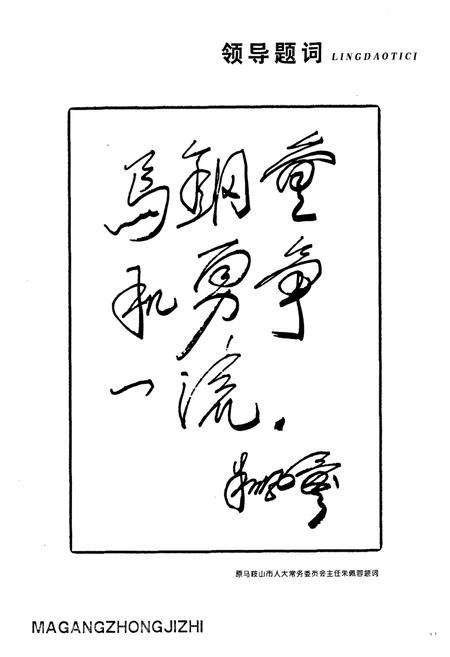 领导题词 LINGDAOTICI
馬鋼重
机勇争
一流.
朱佩蓉
原马鞍山市人大常务委员会主任朱佩蓉题词
MAGANGZHONGJIZHI